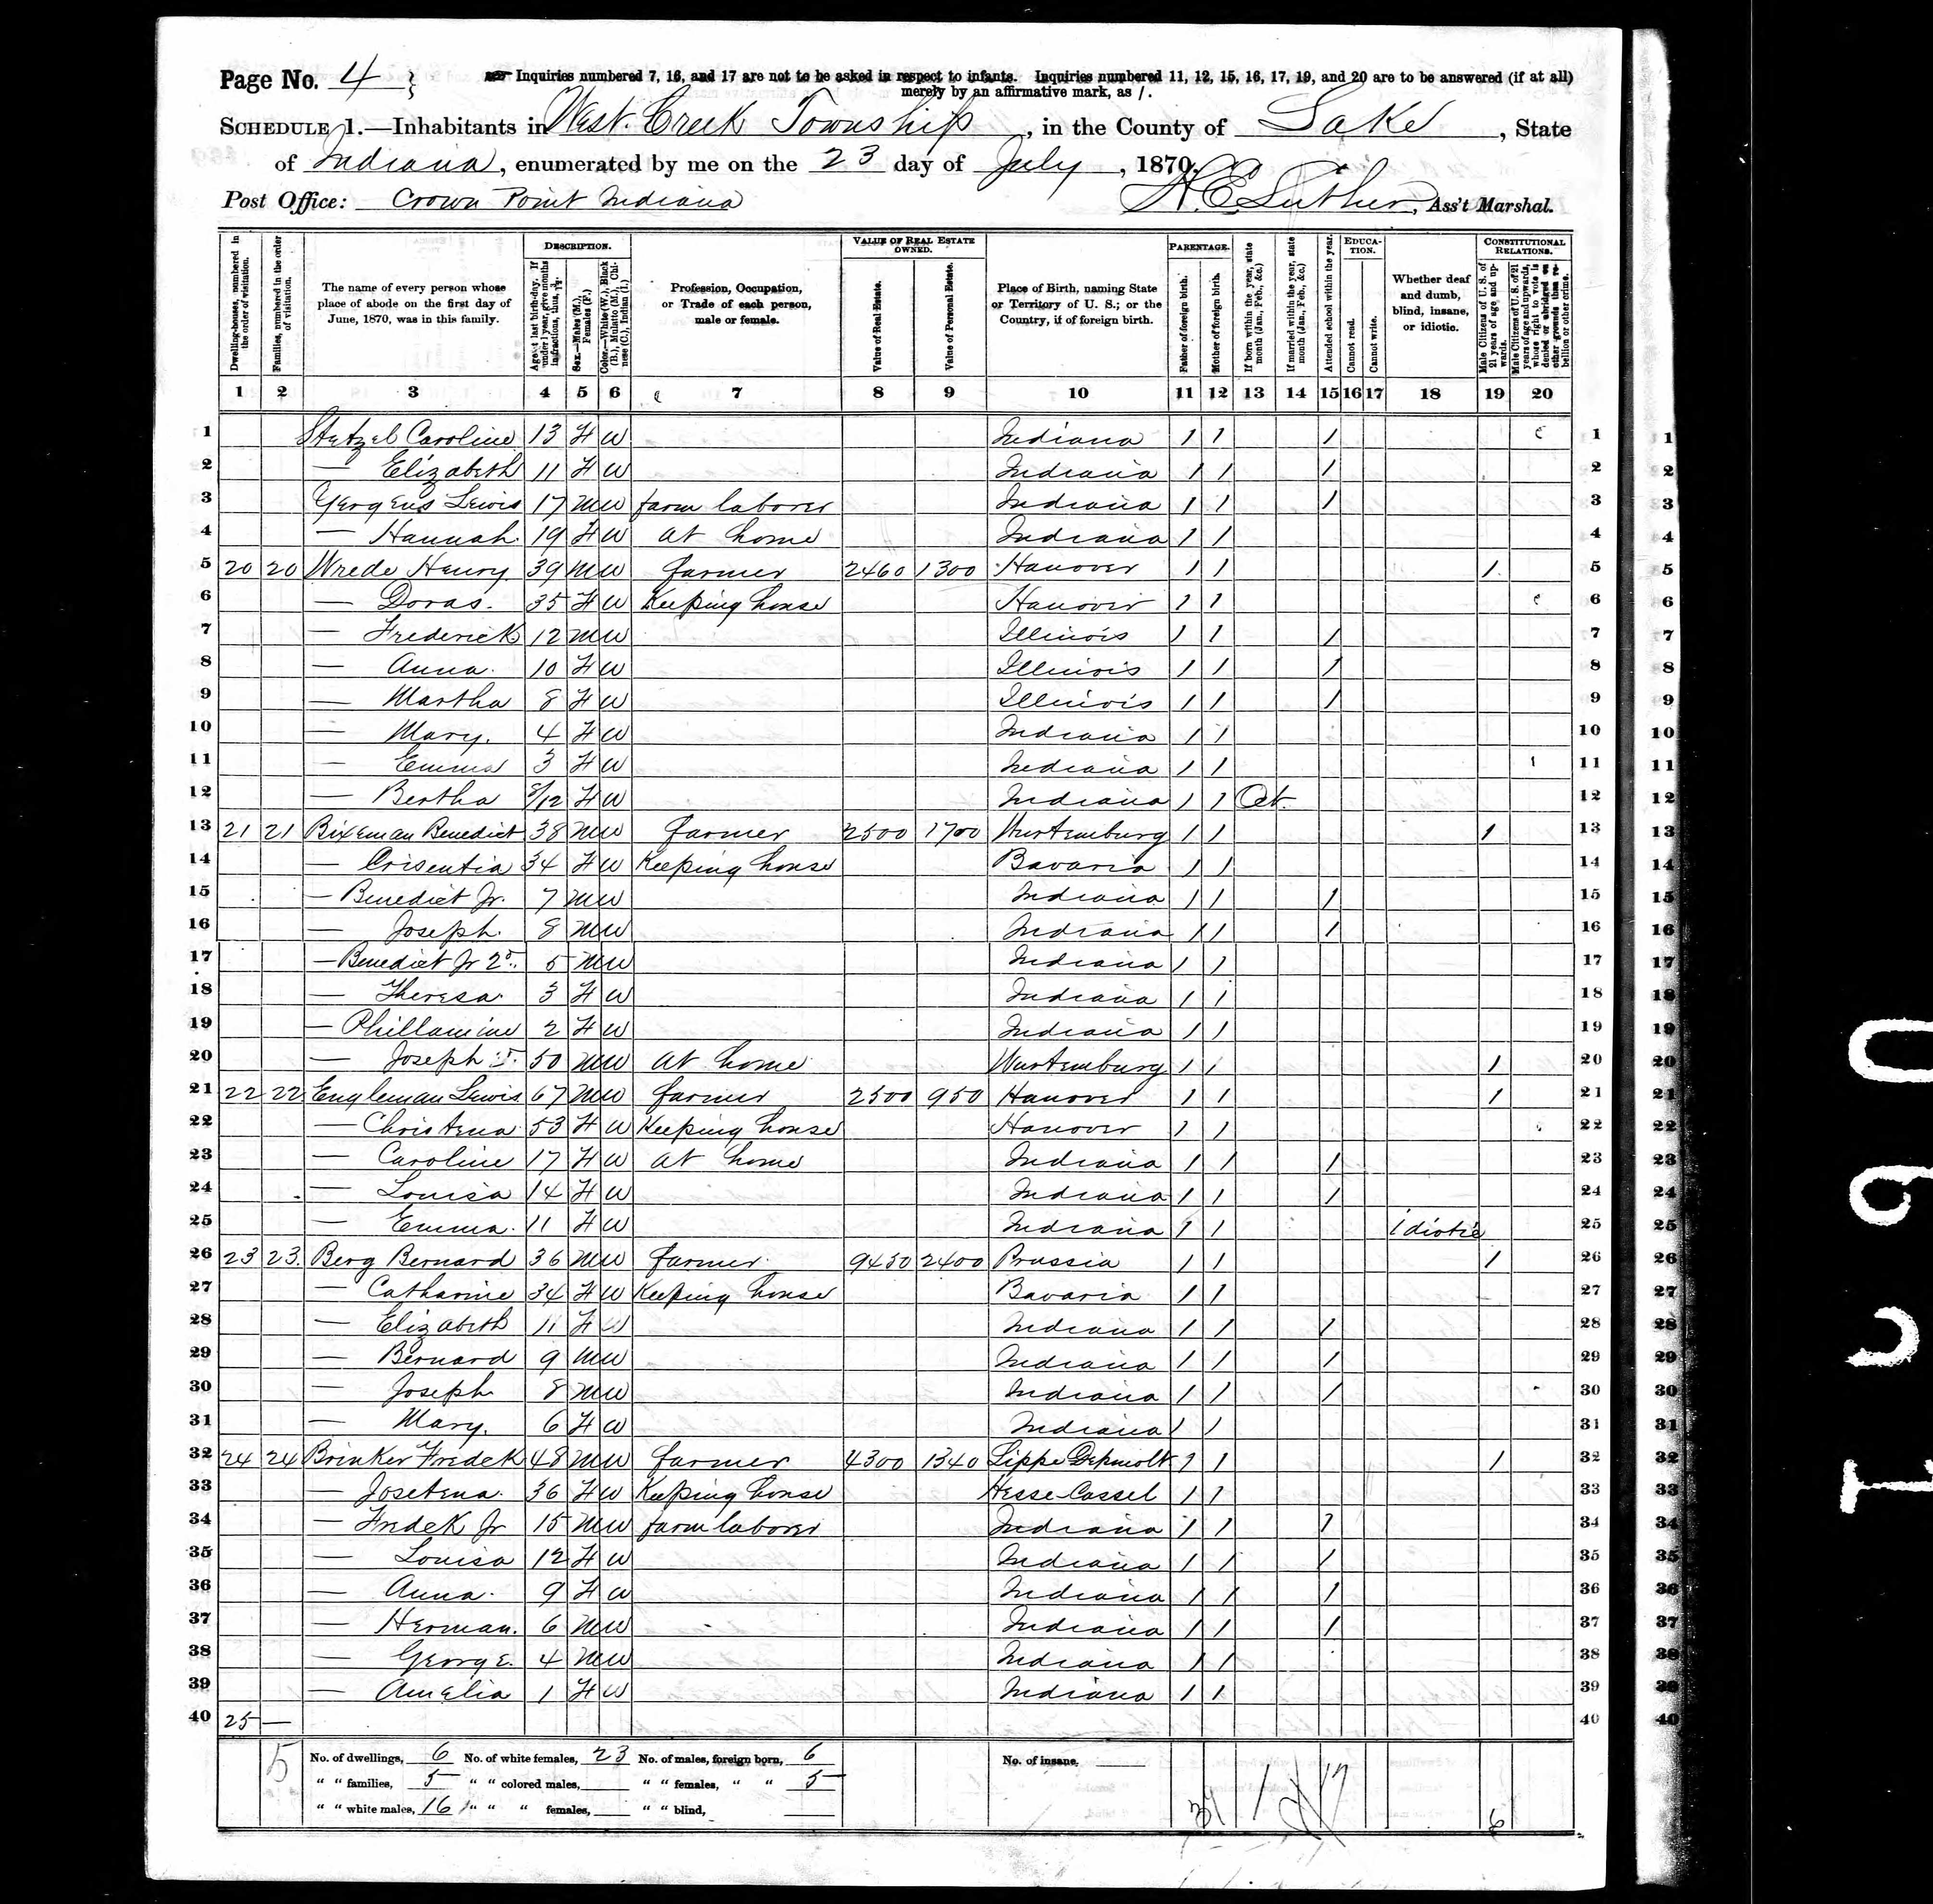 Page No. 4 } Inquiries numbered 7, 16, and 17 are not to be asked in respect to infants. Inquiries numbered 11, 12, 15, 16, 17, 19, and 20 are to be answered (if at all)
merely by an affirmative mark, as /.
SCHEDULE 1.—Inhabitants in West Creek Township, in the County of Lake, State
of Indiana, enumerated by me on the 23 day of July, 1870.
Post Office: Crown Point Indiana H. E. Luther, Ass't Marshal.
Dwelling-houses, numbered in the order of visitation.
Families, numbered in the order of visitation.
The name of every person whose place of abode on the first day of June, 1870, was in this family.
DESCRIPTION.
Age at last birth-day. If under 1 year, give months in fractions, thus, 3/12.
Sex.—Males (M.), Females (F.)
Color.—White (W.), Black (B.), Mulatto (M.), Chinese (C.), Indian (I.)
Profession, Occupation, or Trade of each person, male or female.
VALUE OF REAL ESTATE OWNED.
Value of Real Estate.
Value of Personal Estate.
Place of Birth, naming State or Territory of U. S.; or the Country, if of foreign birth.
PARENTAGE.
Father of foreign birth.
Mother of foreign birth.
If born within the year, state month (Jan., Feb., &c.)
If married within the year, state month (Jan., Feb., &c.)
Attended school within the year.
EDUCATION.
Cannot read.
Cannot write.
Whether deaf and dumb, blind, insane, or idiotic.
CONSTITUTIONAL RELATIONS.
Male Citizens of U. S. of 21 years of age and upwards.
Male Citizens of U. S. of 21 years of age and upwards, whose right to vote is denied or abridged on other grounds than rebellion or other crime.
1 2 3 4 5 6 7 8 9 10 11 12 13 14 15 16 17 18 19 20
1 Stetzel Caroline 13 F W Indiana / / / 1 1
2 — Elizabeth 11 F W Indiana / / / 2 2
3 Gergens Lewis 17 M W farm laborer Indiana / / / 3 3
4 — Hannah 19 F W at home Indiana / / 4 4
5 20 20 Wrede Henry 39 M W farmer 2460 1300 Hanover / / / 5 5
6 — Doras. 35 F W Keeping house Hanover / / 6 6
7 — Frederick 12 M W Illinois / / / 7 7
8 — Anna 10 F W Illinois / / / 8 8
9 — Martha 8 F W Illinois / / / 9 9
10 — Mary. 4 F W Indiana / / 10 10
11 — Emma 3 F W Indiana / / 11 11
12 — Bertha 8/12 F W Indiana / / Oct. 12 12
13 21 21 Bixeman Benedict 38 M W farmer 2500 1700 Wurtemburg / / / 13 13
14 — Crisentia 34 F W Keeping house Bavaria / / 14 14
15 — Benedict Jr. 7 M W Indiana / / / 15 15
16 — Joseph. 8 M W Indiana / / / 16 16
17 — Benedict Jr 2d. 5 M W Indiana / / 17 17
18 — Theresa 3 F W Indiana / / 18 18
19 — Phillamine 2 F W Indiana / / 19 19
20 — Joseph 50 M W at home Wurtemburg / / / 20 20
21 22 22 Engleman Lewis 67 M W farmer 2500 950 Hanover / / / 21 21
22 — Christena 53 F W Keeping house Hanover / / 22 22
23 — Caroline 17 F W at home Indiana / / / 23 23
24 — Louisa 14 F W Indiana / / / 24 24
25 — Emma. 11 F W Indiana / / idiotic 25 25
26 23 23. Berg Bernard 36 M W farmer 9450 2400 Prussia / / / 26 26
27 — Catharine 34 F W Keeping house Bavaria / / 27 27
28 — Elizabeth 11 F W Indiana / / / 28 28
29 — Bernard 9 M W Indiana / / / 29 29
30 — Joseph. 8 M W Indiana / / / 30 30
31 — Mary. 6 F W Indiana / / 31 31
32 24 24 Brinker Fredek 48 M W farmer 4300 1340 Lippe Depmolt / / / 32 32
33 — Josetena. 36 F W Keeping house Hesse-Cassel / / 33 33
34 — Fredek Jr 15 M W farm laborer Indiana / / / 34 34
35 — Louisa 12 F W Indiana / / / 35 35
36 — Anna. 9 F W Indiana / / / 36 36
37 — Herman. 6 M W Indiana / / / 37 37
38 — George. 4 M W Indiana / / 38 38
39 — Amelia 1 F W Indiana / / 39 39
40 25 — 40 40
5 No. of dwellings, 6 No. of white females, 23 No. of males, foreign born, 6 No. of insane,
" " families, 5 " " colored males, " " females, " " 5
" " white males, 16 " " " females, " " blind,
6